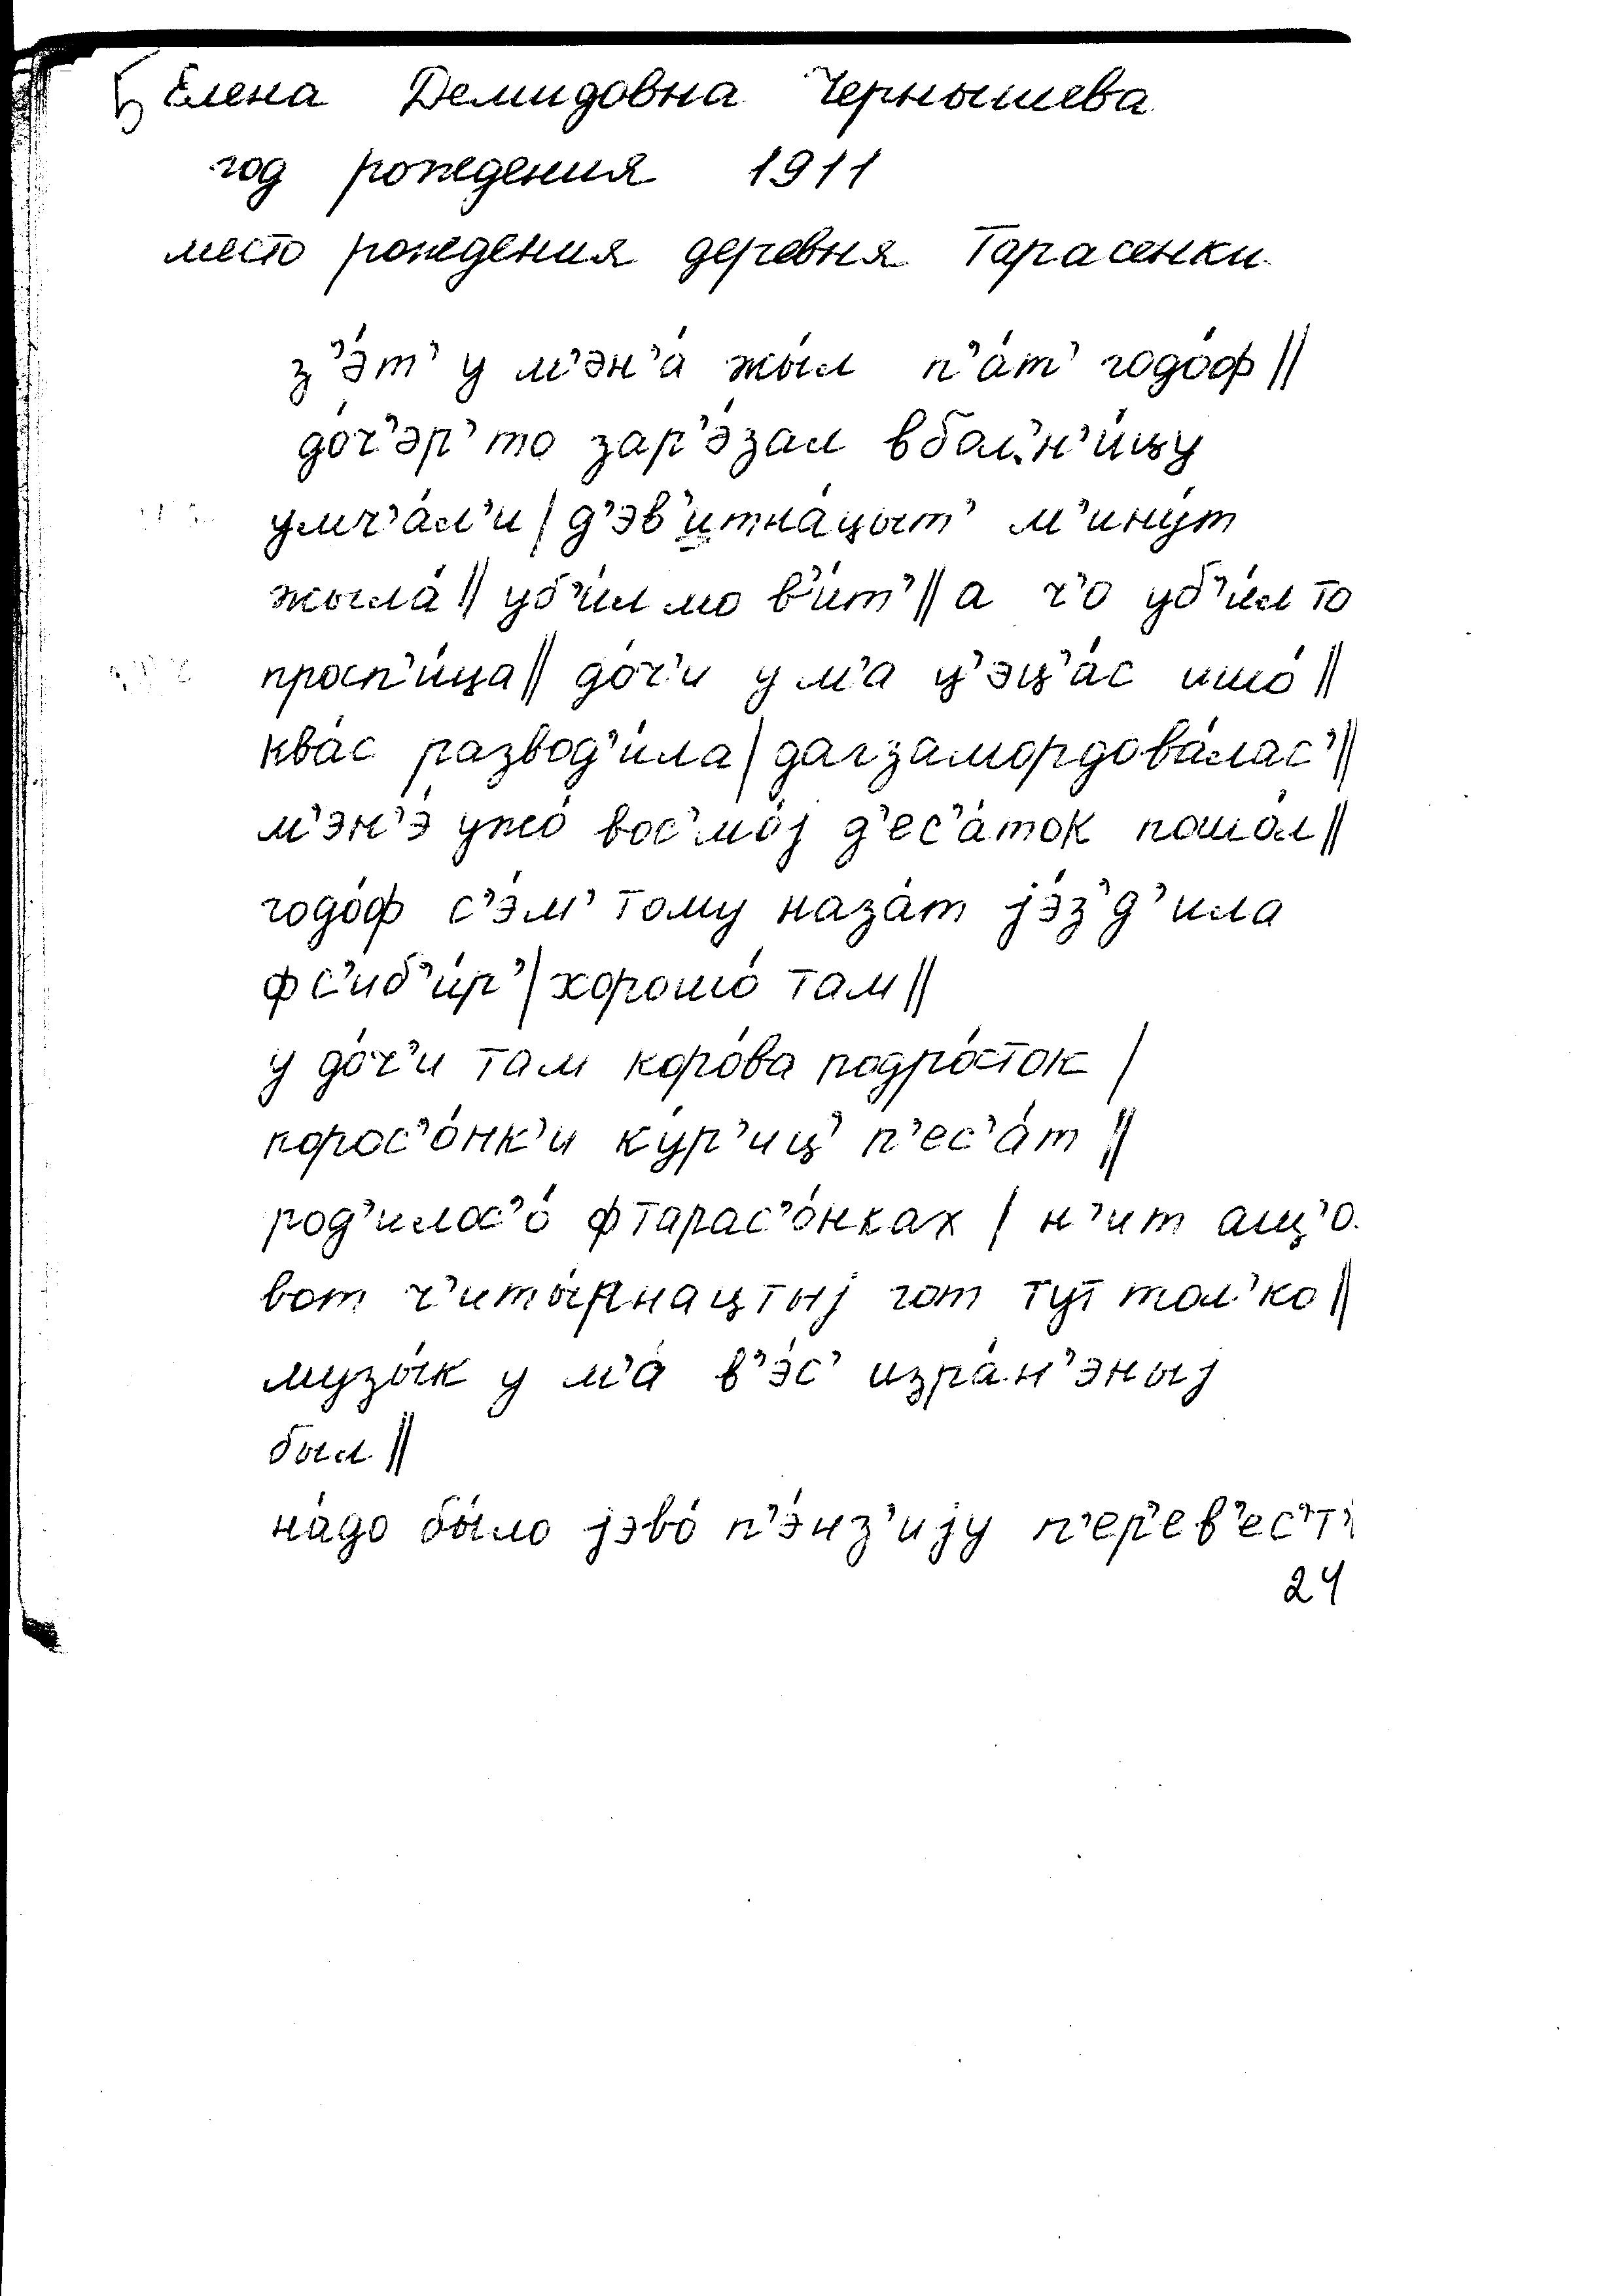 Елена Демидовна Чернышева
год рождения 1911
место рождения деревня Тарасенки
з’э́т’ у м’эн’а́ жы́л п’а́т’ годо́ф ||
до́ч’эр’ то зар’э́зал вбал’н’и́цу
умч’а́л’и | д’эв’итна́цыт’ м’ину́т
жыла́ || уб’и́л мо в’и́т’ || а ч’о уб’и́л то
просп’и́ца || до́ч’и у м’а ц’эц’а́с ишо́ ||
ква́с развод’и́ла | дагзамордова́лас’ ||
м’эн’э́ ужо́ вос’мо́j д’ес’а́ток пошо́л ||
годо́ф с’э́м’ тому наза́т jэ́з’д’ила
фс’иб’и́р’ | хорошо́ там ||
у до́ч’и там коро́ва подро́сток |
порос’о́нк’и ку́р’иц’ п’ес’а́т ||
род’илос’о́ фтарас’о́нках | н’ит ащ’о.
вот ч’иты́рнацтыj гот тут тол’ко ||
музы́к у м’а́ в’э́с’ изра́н’эныj
был ||
на́до бы́ло jэво́ п’э́нз’иjу п’ер’ев’ес’т’
24